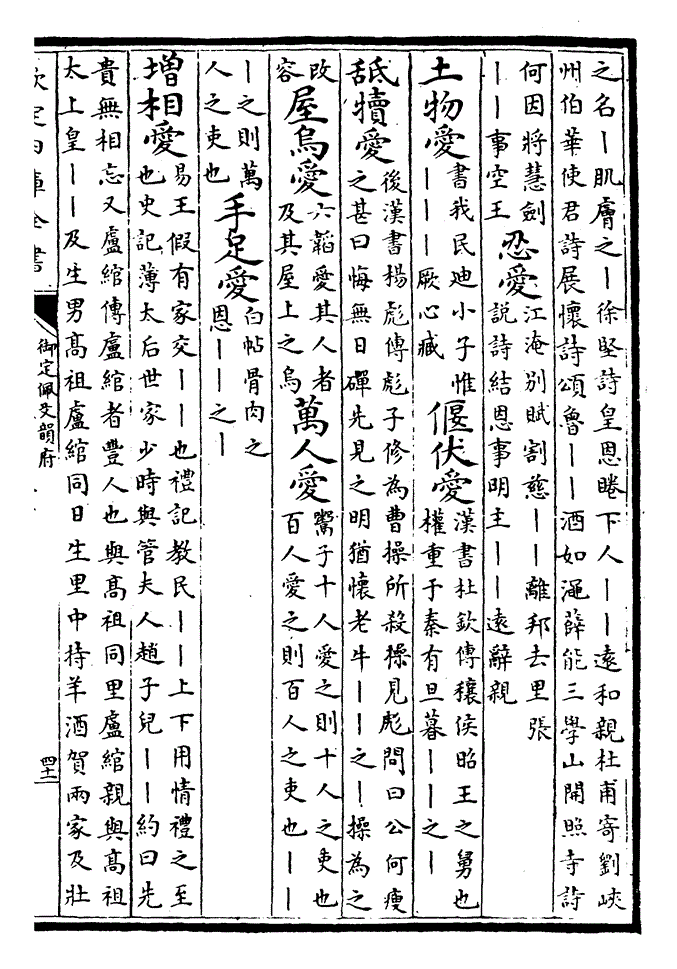 之名｜肌膚之｜徐堅詩皇恩睠下人｜｜遠和親杜甫寄劉峽
州伯華使君詩展懷詩頌魯｜｜酒如澠薛能三學山開照寺詩
何因將慧劍
｜｜事空王
忍愛
江淹别賦割慈｜｜離邦去里張
說詩結恩事明主｜｜遠辭親
土物愛
書我民迪小子惟
｜｜｜厥心臧
偃伏愛
漢書杜欽傳穰侯昭王之舅也
權重于秦有旦暮｜｜之｜
舐犢愛
後漢書楊彪傳彪子修為曹操所殺操見彪問曰公何瘦
之甚曰悔無日磾先見之明猶懷老牛｜｜之｜操為之
改
容
屋烏愛
六韜愛其人者
及其屋上之烏
萬人愛
鬻子十人愛之則十人之吏也
百人愛之則百人之吏也｜｜
｜之則萬
人之吏也
手足愛
白帖骨肉之
恩｜｜之｜
增相愛
易王假有家交｜｜也禮記教民｜｜上下用情禮之至
也史記薄太后世家少時與管夫人趙子兒｜｜約曰先
貴無相忘又盧綰傳盧綰者豐人也與高祖同里盧綰親與高祖
太上皇｜｜及生男髙祖盧綰同日生里中持羊酒賀兩家及壯
欽定四庫全書
御定佩文韻府
四十二